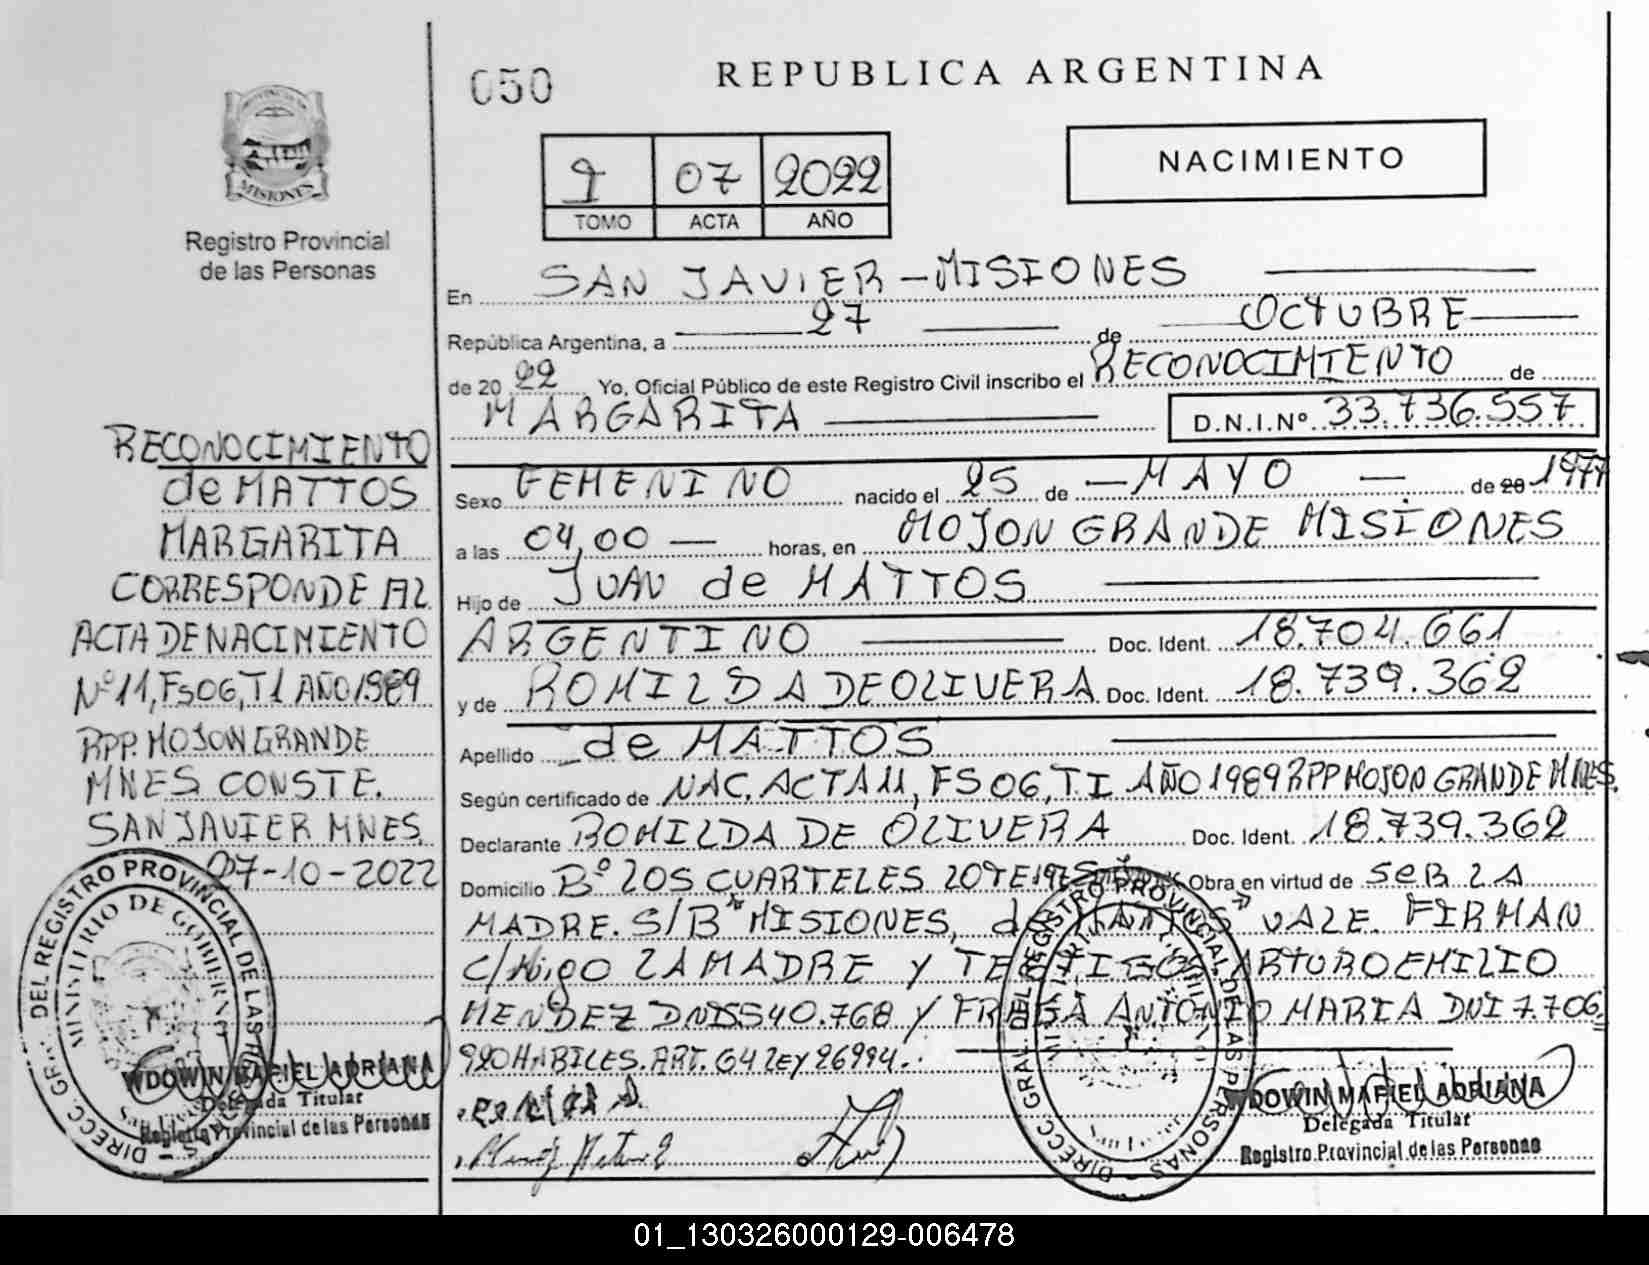 050
REPUBLICA ARGENTINA
1 07 2022
TOMO ACTA AÑO
NACIMIENTO
MISIONES
Registro Provincial
de las Personas
En SAN JAVIER - MISIONES
República Argentina, a 27 de OCTUBRE
de 20 22 Yo, Oficial Público de este Registro Civil inscribo el RECONOCIMIENTO de
MARGARITA D.N.I.Nº 33.736.557
Sexo FEMENINO nacido el 25 de - MAYO - de 20 1977
a las 04,00 - horas, en MOJON GRANDE MISIONES
Hijo de JUAN de MATTOS
ARGENTINO Doc. Ident. 18.704.661
y de ROMILDA DE OLIVERA Doc. Ident. 18.739.362
Apellido de MATTOS
Según certificado de NAC. ACTA 11, FS 06, T.I. AÑO 1989 RPP MOJON GRANDE MNES.
Declarante ROMILDA DE OLIVERA Doc. Ident. 18.739.362
Domicilio Bº LOS CUARTELES Obra en virtud de SER LA
MADRE. S/B MISIONES, VALE. FIRMAN
C/Migo LA MADRE Y TESTIGOS ARTURO EMILIO
MENDEZ DNI 5540.768 Y FRAGA ANTONIO MARIA DNI 7.706.
920 HABILES. ART. 64 LEY 26994.
RECONOCIMIENTO
de MATTOS
MARGARITA
CORRESPONDE AL
ACTA DE NACIMIENTO
Nº 11, FS 06, T1 AÑO 1989
RPP. MOJON GRANDE
MNES CONSTE.
SAN JAVIER MNES.
27-10-2022
DIRECC. GRAL. DEL REGISTRO PROVINCIAL DE LAS PERSONAS
MINISTERIO DE GOBIERNO
WDOWIN MARIEL ADRIANA
Delegada Titular
Registro Provincial de las Personas
DIRECC. GRAL. DEL REGISTRO PROVINCIAL DE LAS PERSONAS
WDOWIN MARIEL ADRIANA
Delegada Titular
Registro Provincial de las Personas
01_130326000129-006478